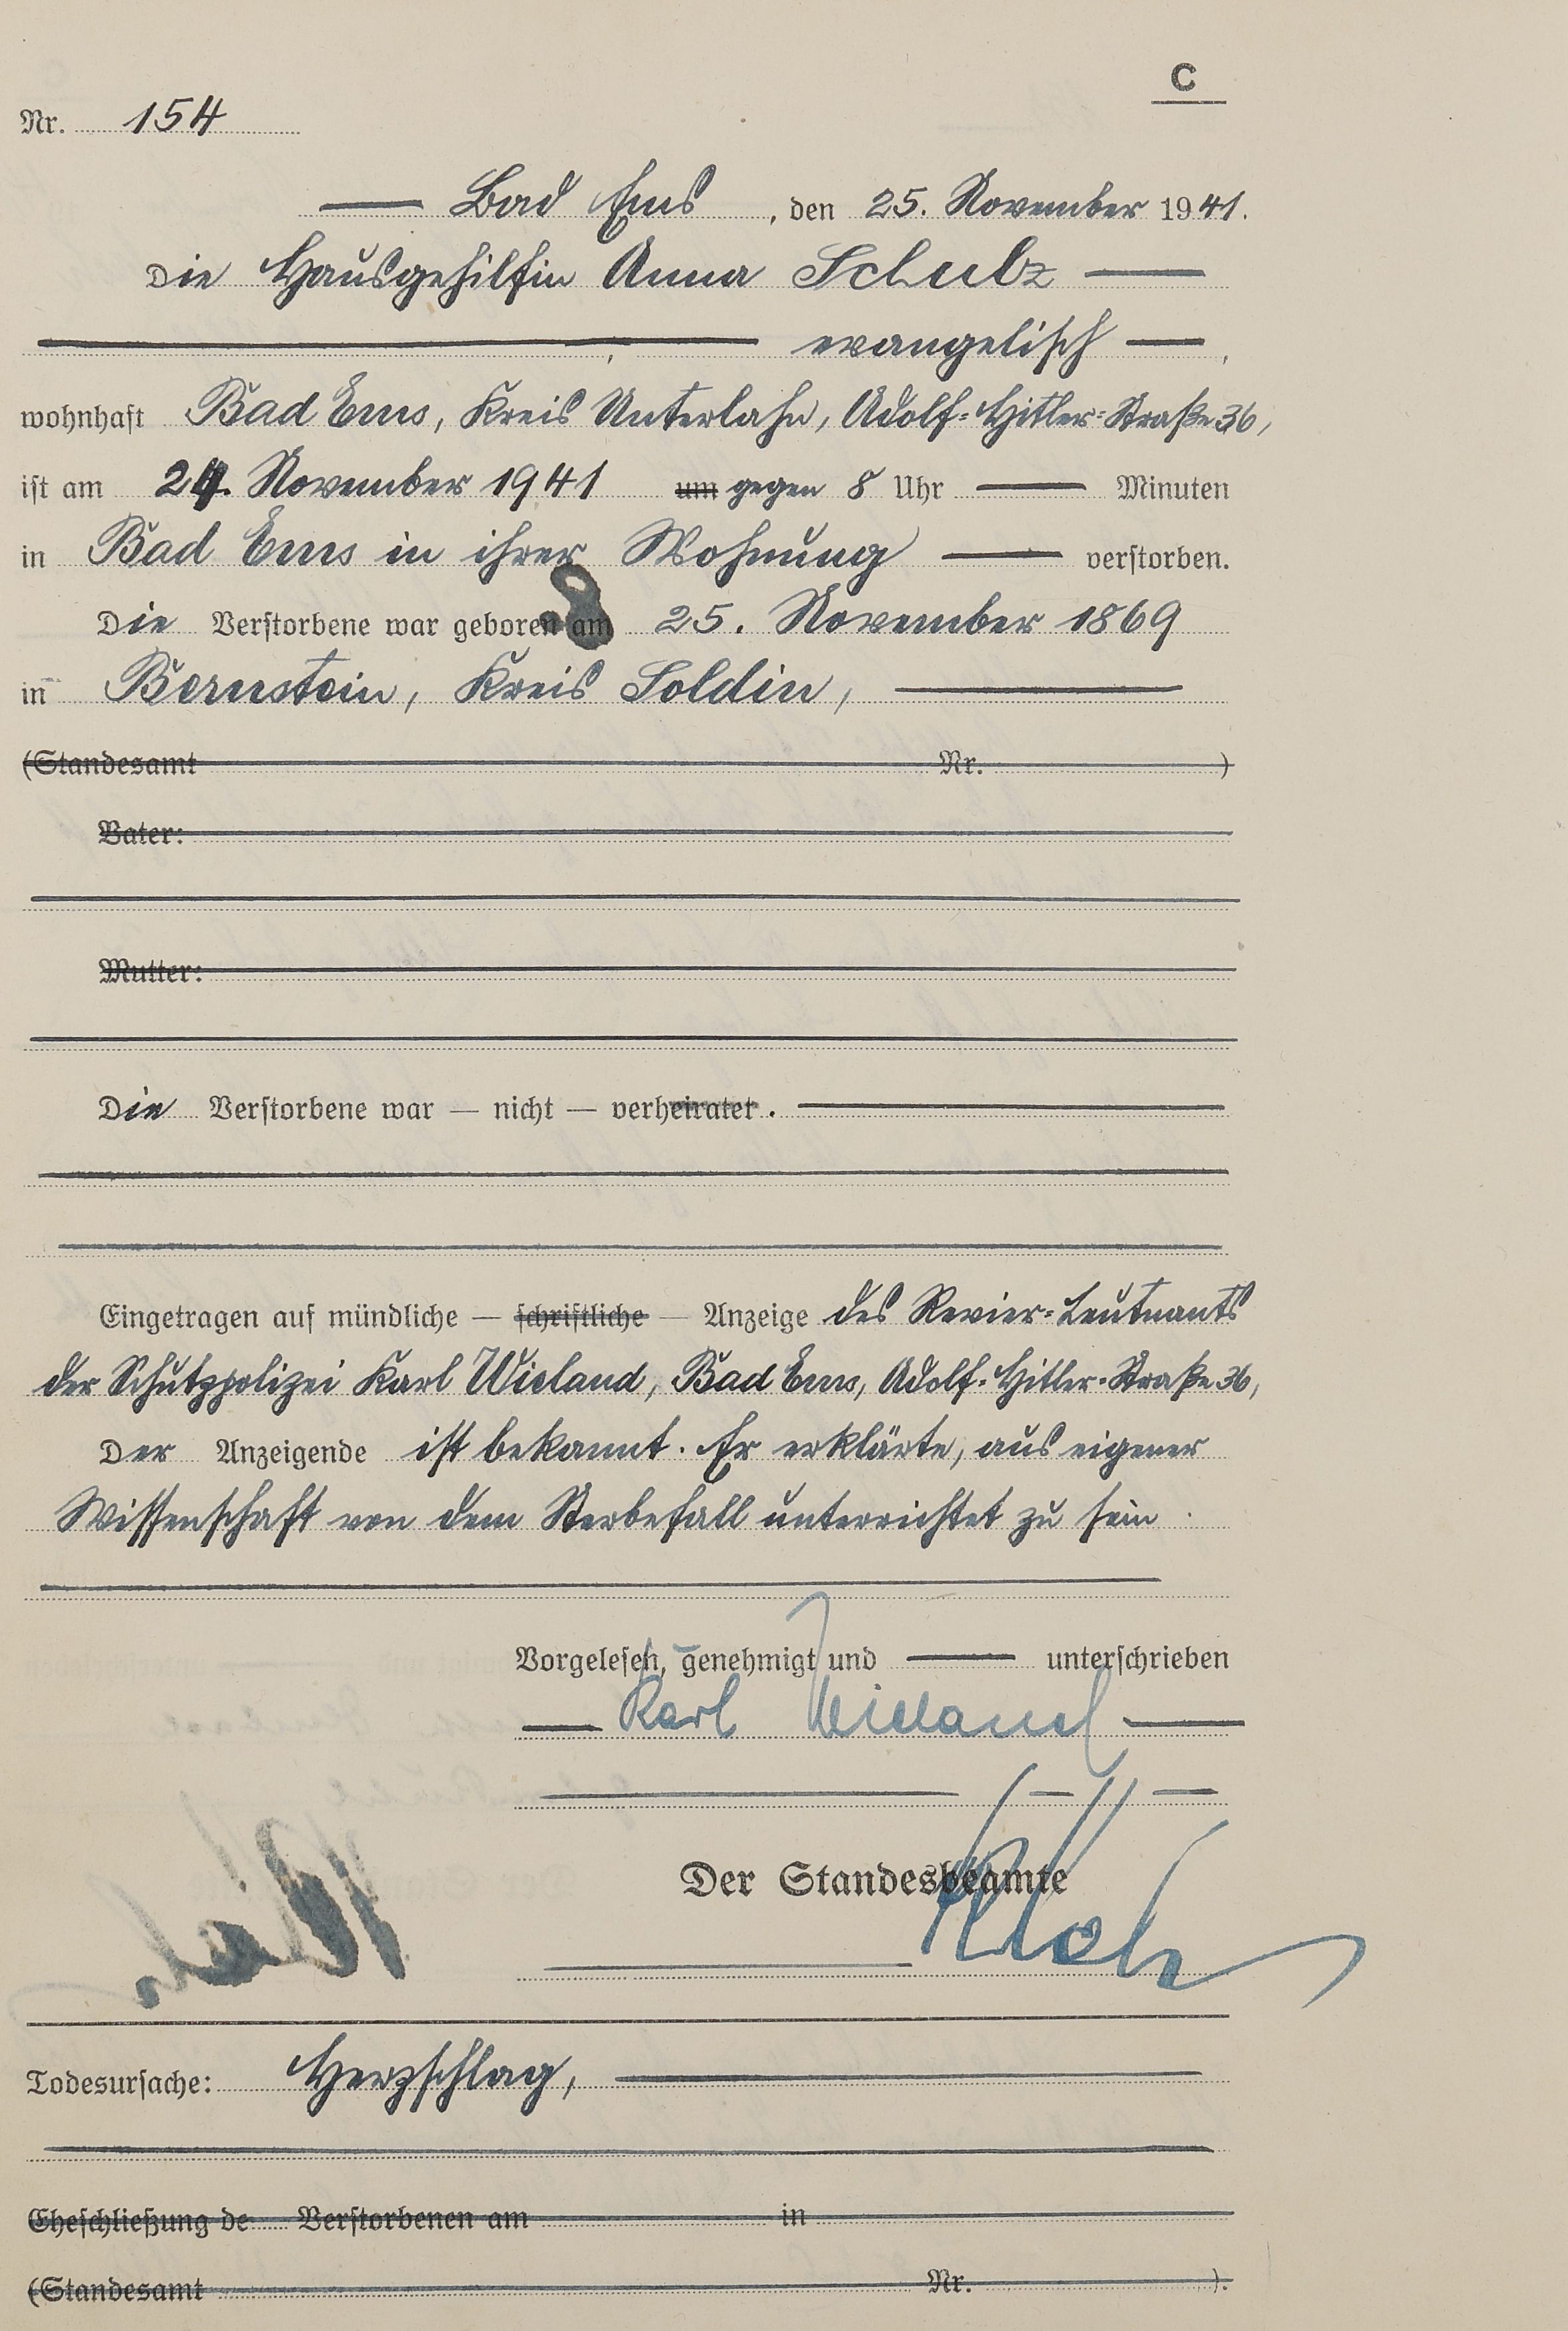 C
Nr. 154
Bad Ems, den 25. November 1941.
Die Hausgehilfin Anna Schulz
evangelisch,
wohnhaft Bad Ems, Kreis Unterlahn, Adolf-Hitler-Straße 36,
ist am 24. November 1941 um gegen 8 Uhr Minuten
in Bad Ems in ihrer Wohnung verstorben.
Die Verstorbene war geboren am 25. November 1869
in Bernstein, Kreis Soldin,
(Standesamt Nr. )
Vater:
Mutter:
Die Verstorbene war — nicht — verheiratet.
Eingetragen auf mündliche — schriftliche — Anzeige des Revier-Leutnants
der Schutzpolizei Karl Wieland, Bad Ems, Adolf-Hitler-Straße 36,
Der Anzeigende ist bekannt. Er erklärte, aus eigener
Wissenschaft von dem Sterbefall unterrichtet zu sein.
Vorgelesen, genehmigt und unterschrieben
Karl Wieland
Der Standesbeamte
Todesursache: Herzschlag,
Eheschließung de Verstorbenen am in
(Standesamt Nr. ).